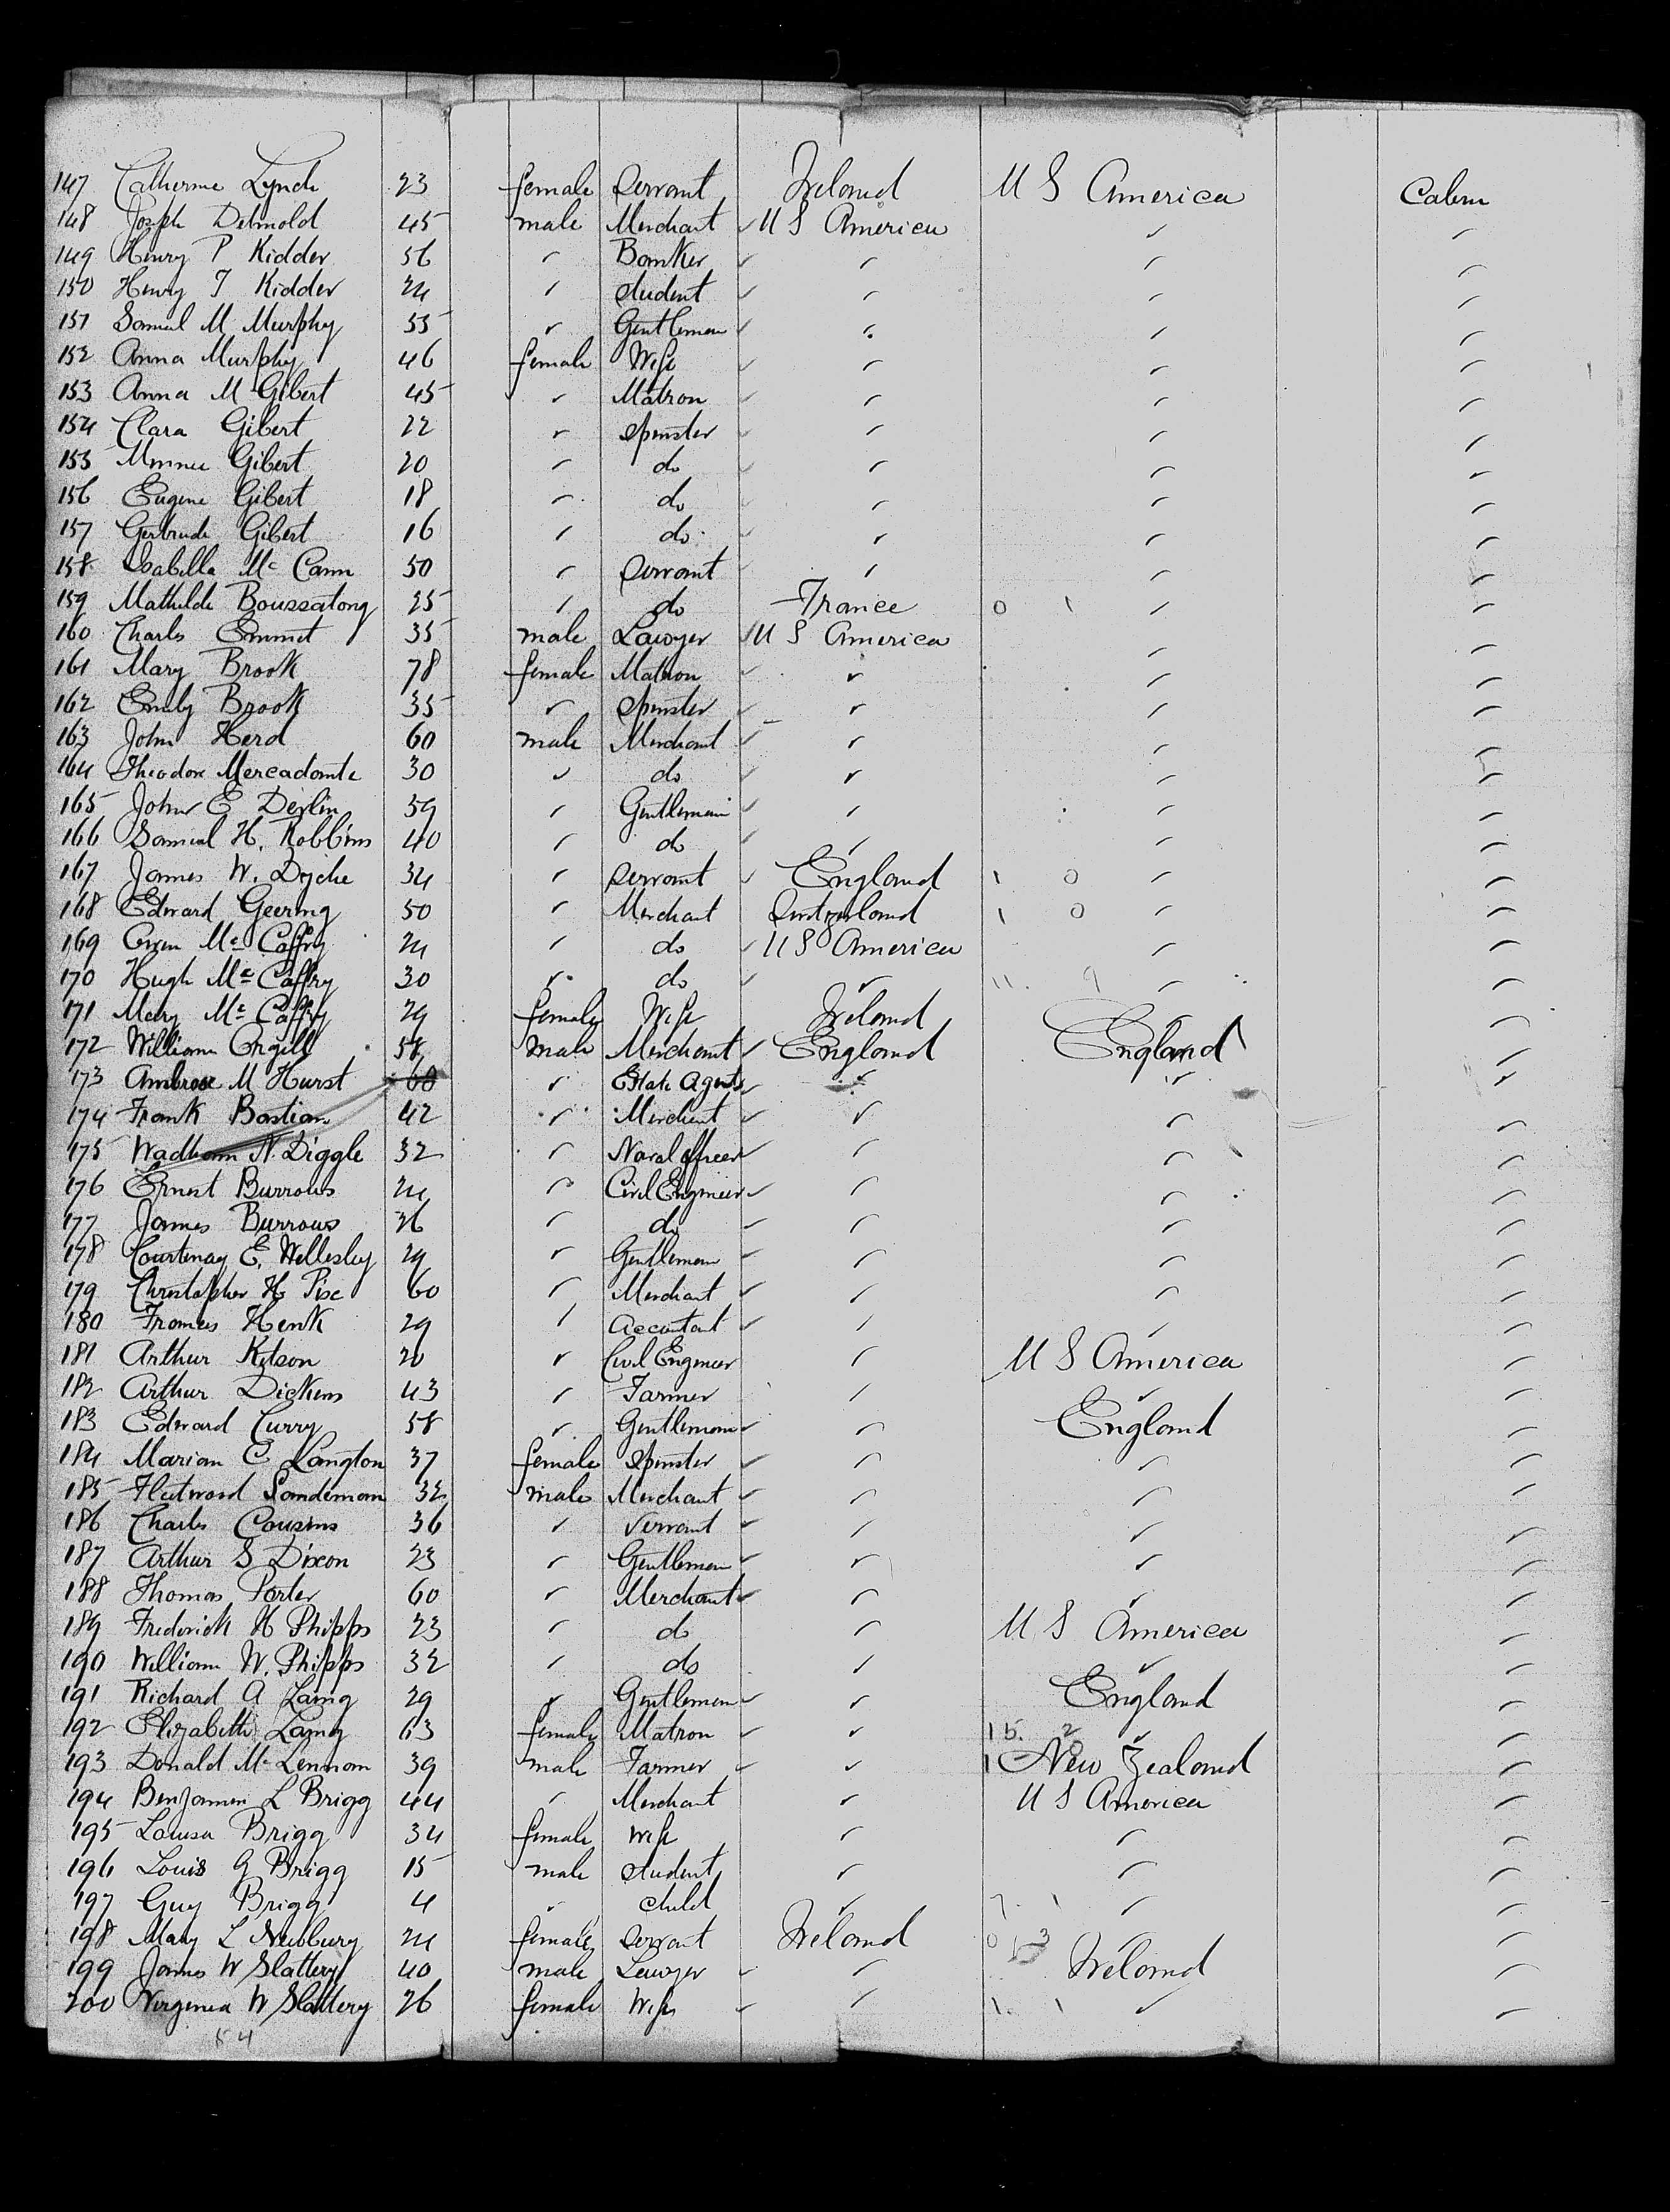 147 Catherine Lynch 23 female Servant Ireland U S America Cabin
148 Joseph Detmold 45 male Merchant ✓ U S America ✓ ✓
149 Henry P Kidder 56 ✓ Banker ✓ ✓ ✓ ✓
150 Henry T Kidder 24 ✓ Student ✓ ✓ ✓ ✓
151 Samuel M Murphy 55 ✓ Gentleman ✓ ✓ ✓ ✓
152 Anna Murphy 46 female Wife ✓ ✓ ✓ ✓
153 Anna M Gibert 45 ✓ Matron ✓ ✓ ✓ ✓
154 Clara Gibert 22 ✓ Spinster ✓ ✓ ✓ ✓
155 Minnie Gibert 20 ✓ do ✓ ✓ ✓ ✓
156 Eugene Gibert 18 ✓ do ✓ ✓ ✓ ✓
157 Gertrude Gibert 16 ✓ do ✓ ✓ ✓ ✓
158 Isabella Mc Cann 50 ✓ Servant ✓ ✓ ✓ ✓
159 Mathilde Boussatong 25 ✓ do France 0 1 ✓ ✓
160 Charles Emmet 35 male Lawyer ✓ U S America ✓ ✓
161 Mary Brook 78 female Matron ✓ ✓ ✓ ✓
162 Emily Brook 35 ✓ Spinster ✓ ✓ ✓ ✓
163 John Herd 60 male Merchant ✓ ✓ ✓ ✓
164 Theodore Mercadante 30 ✓ do ✓ ✓ ✓ ✓
165 John E Devlin 59 ✓ Gentleman ✓ ✓ ✓ ✓
166 Samuel H. Robbins 40 ✓ do ✓ ✓ ✓ ✓
167 James W. Dyche 34 ✓ Servant ✓ England 1 0 ✓ ✓
168 Edward Geering 50 ✓ Merchant Switzerland 1 0 ✓ ✓
169 Owen Mc Caffry 24 ✓ do ✓ U S America ✓ ✓
170 Hugh Mc Caffry 30 ✓ do ✓ ✓ 11 9 ✓ ✓
171 Mary Mc Caffry 29 female Wife Ireland ✓ ✓
172 William Orgill 58 male Merchant ✓ England England ✓
173 Ambrose M Hurst 60 ✓ Estate Agent ✓ ✓ ✓ ✓
174 Frank Bastian 42 ✓ Merchant ✓ ✓ ✓ ✓
175 Wadham N. Diggle 32 ✓ Naval officer ✓ ✓ ✓ ✓
176 Ernest Burrows 24 ✓ Civil Engineer ✓ ✓ ✓ ✓
177 James Burrows 26 ✓ do ✓ ✓ ✓ ✓
178 Courtenay E. Wellesley 29 ✓ Gentleman ✓ ✓ ✓ ✓
179 Christopher H 60 ✓ Merchant ✓ ✓ ✓ ✓
180 Frances Henk 29 ✓ Accountant ✓ ✓ ✓ ✓
181 Arthur Kitson 20 ✓ Civil Engineer ✓ U S America ✓
182 Arthur Dickens 43 ✓ Farmer ✓ ✓ ✓
183 Edward Curry 58 ✓ Gentleman ✓ ✓ England ✓
184 Marian E Langton 37 female Spinster ✓ ✓ ✓ ✓
185 Fleetwood Sandeman 32 male Merchant ✓ ✓ ✓ ✓
186 Charles Cousins 36 ✓ Servant ✓ ✓ ✓ ✓
187 Arthur S Dixon 23 ✓ Gentleman ✓ ✓ ✓ ✓
188 Thomas Porter 60 ✓ Merchant ✓ ✓ ✓ ✓
189 Frederick H Phipps 23 ✓ do ✓ U S America ✓
190 William W. Phipps 32 ✓ do ✓ ✓ ✓
191 Richard A Laing 29 ✓ Gentleman ✓ ✓ England ✓
192 Elizabeth Laing 63 female Matron ✓ ✓ 15. 2 ✓ ✓
193 Donald Mc Lennan 39 male Farmer ✓ ✓ 1 New Zealand ✓
194 Benjamin L Brigg 44 ✓ Merchant ✓ U S America ✓
195 Louisa Brigg 34 female Wife ✓ ✓ ✓
196 Louis G Brigg 15 male Student ✓ ✓ ✓
197 Guy Brigg 4 ✓ Child ✓ 7. 1 ✓ ✓
198 Mary L Newbury 24 female Servant Ireland 0 3 ✓ ✓
199 James W Slattery 40 male Lawyer ✓ ✓ Ireland ✓
200 Virginia W Slattery 26 female Wife ✓ ✓ 1. 1 ✓ ✓
54